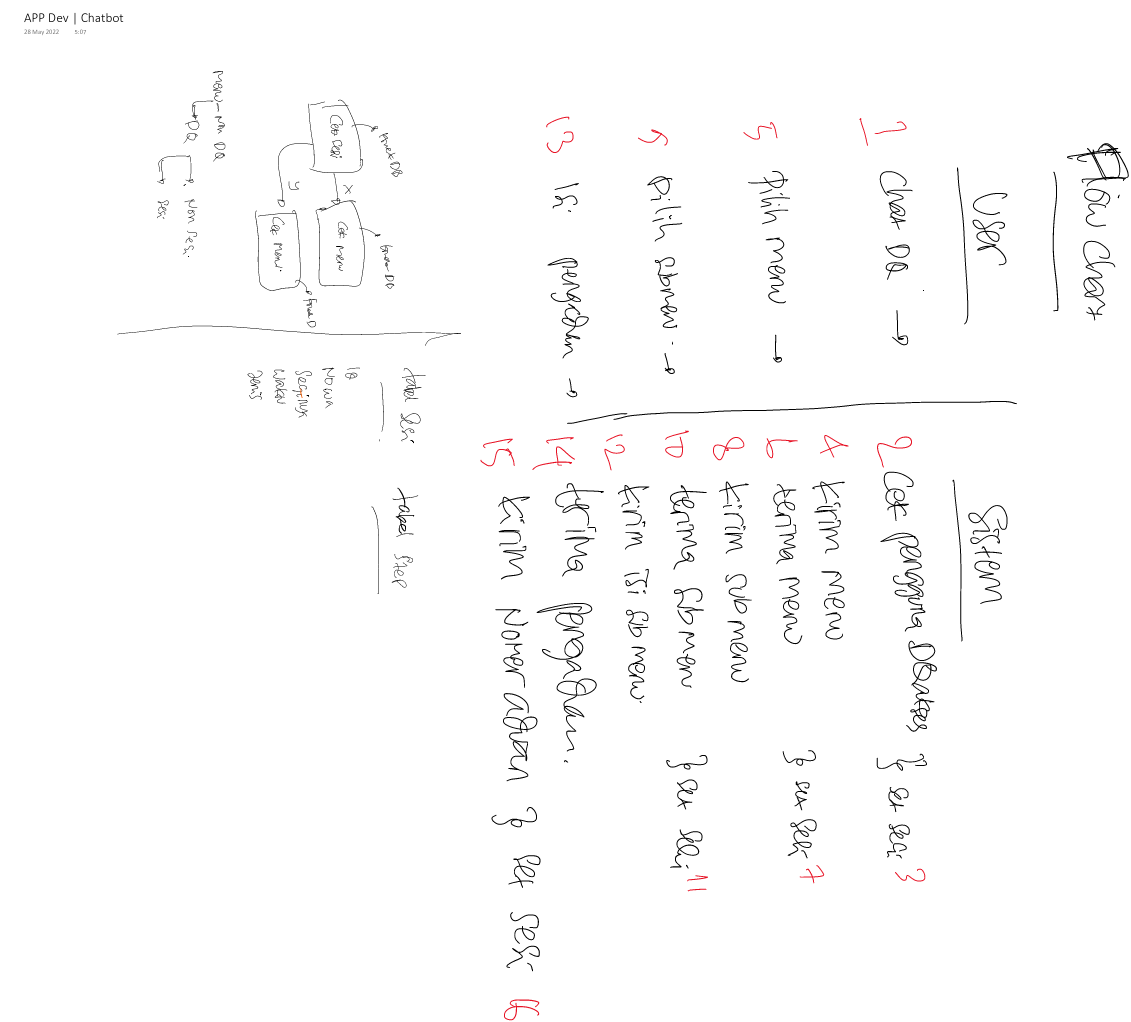 APP Dev | Chatbot
28 May 2022 5:07
Flow Chart
User
1 Chat DQ →
5 Pilih menu →
9 Pilih submenu →
13 Isi pengaduan →
Sistem
2 Cek pengguna
} set sesi 3
4 Kirim menu
6 terima menu } set sesi 7
8 Kirim submenu
10 terima submenu } set sesi 11
12 Kirim isi submenu
14 terima pengaduan.
15 Kirim Nomer aduan } set sesi 16
Menu - Non DQ
DQ
Non Sesi
Sesi
Cek sesi
X
Y
Cek menu
Cek menu
tabel sesi
ID
No wa
Sesinya
Waktu
Jenis
tabel step